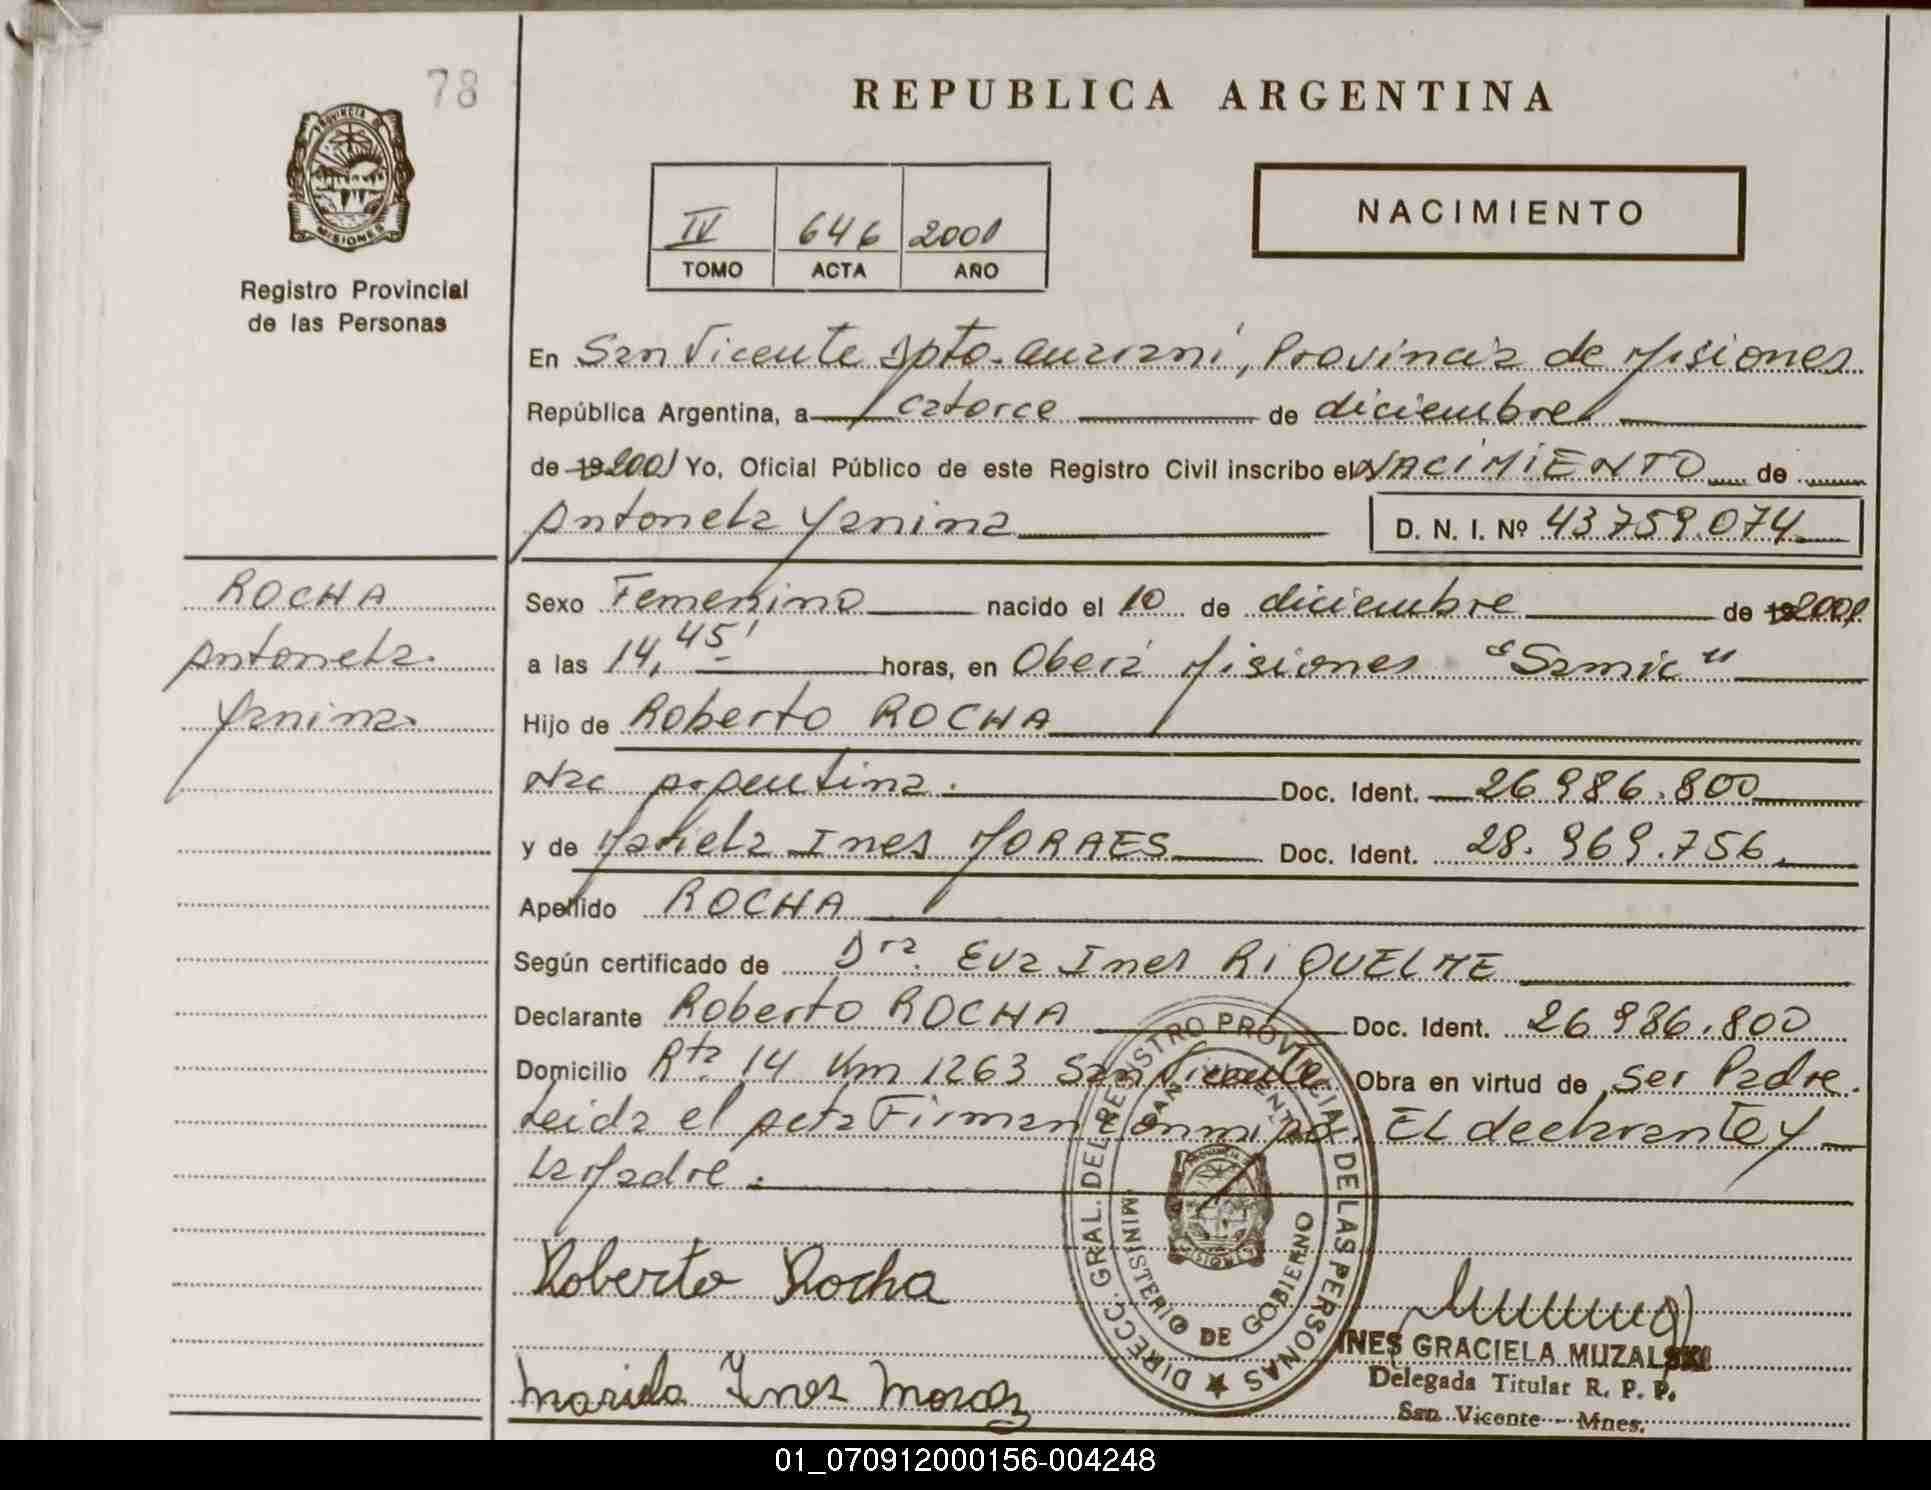 78
REPUBLICA ARGENTINA
PROVINCIA DE
MISIONES
Registro Provincial
de las Personas
IV 646 2001
TOMO ACTA AÑO
NACIMIENTO
En San Vicente Dpto. Guaraní, Provincia de Misiones
República Argentina, a catorce de diciembre
de 19 2001 Yo, Oficial Público de este Registro Civil inscribo el NACIMIENTO de
Antonela Yanina D. N. I. Nº 43.759.074
ROCHA
Antonela
Yanina
Sexo Femenino nacido el 10 de diciembre de 19 2001
a las 14,45' horas, en Oberá Misiones "Samic"
Hijo de Roberto ROCHA
Nac Argentina. Doc. Ident. 26.986.800
y de Mariela Ines MORAES Doc. Ident. 28.969.756
Apellido ROCHA
Según certificado de Dra. Eva Ines RIQUELME
Declarante Roberto ROCHA Doc. Ident. 26.986.800
Domicilio Rta 14 Km 1263 San Vicente Obra en virtud de ser Padre.
Leida el acta Firman Conmigo. El declarante y
la Madre.
DIRECC. GRAL. DEL REGISTRO PROVINCIAL DE LAS PERSONAS
SAN VICENTE
MINISTERIO DE GOBIERNO
Roberto Rocha
INES GRACIELA MUZALSKI
Delegada Titular R. P. P.
San Vicente - Mnes.
Mariela Ynes
01_070912000156-004248